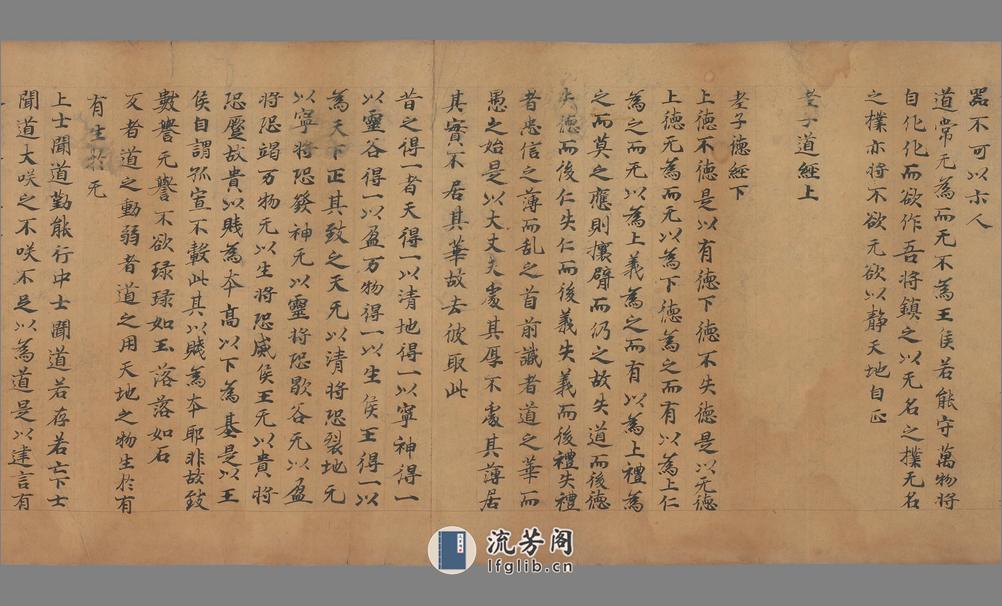 器不可以示人
道常无為而无不為王侯若能守萬物將
自化化而欲作吾將鎮之以无名之撲无名
之樸亦將不欲无欲以靜天地自正
老子道經上
老子德經下
上德不德是以有德下德不失德是以无德
上德无為而无以為下德為之而有以為上仁
為之而无以為上義為之而有以為上禮為
之而莫之應則攘臂而仍之故失道而後德
失德而後仁失仁而後義失義而後禮失禮
者忠信之薄而乱之首前識者道之華而
愚之始是以大丈夫處其厚不處其薄居
其實不居其華故去彼取此
昔之得一者天得一以清地得一以寧神得一
以靈谷得一以盈万物得一以生侯王得一以
為天下正其致之天无以清將恐裂地无
以寧將恐發神无以靈將恐歇谷无以盈
將恐竭万物无以生將恐威侯王无以貴將
恐蹷故貴以賤為本高以下為基是以王
侯自謂孤宣不轂此其以賤為本耶非故致
數譽无譽不欲琭琭如玉落落如石
反者道之動弱者道之用天地之物生於有
有生於无
上士聞道勤能行中士聞道若存若亡下士
聞道大咲之不咲不足以為道是以建言有
流芳阁
lfglib.cn